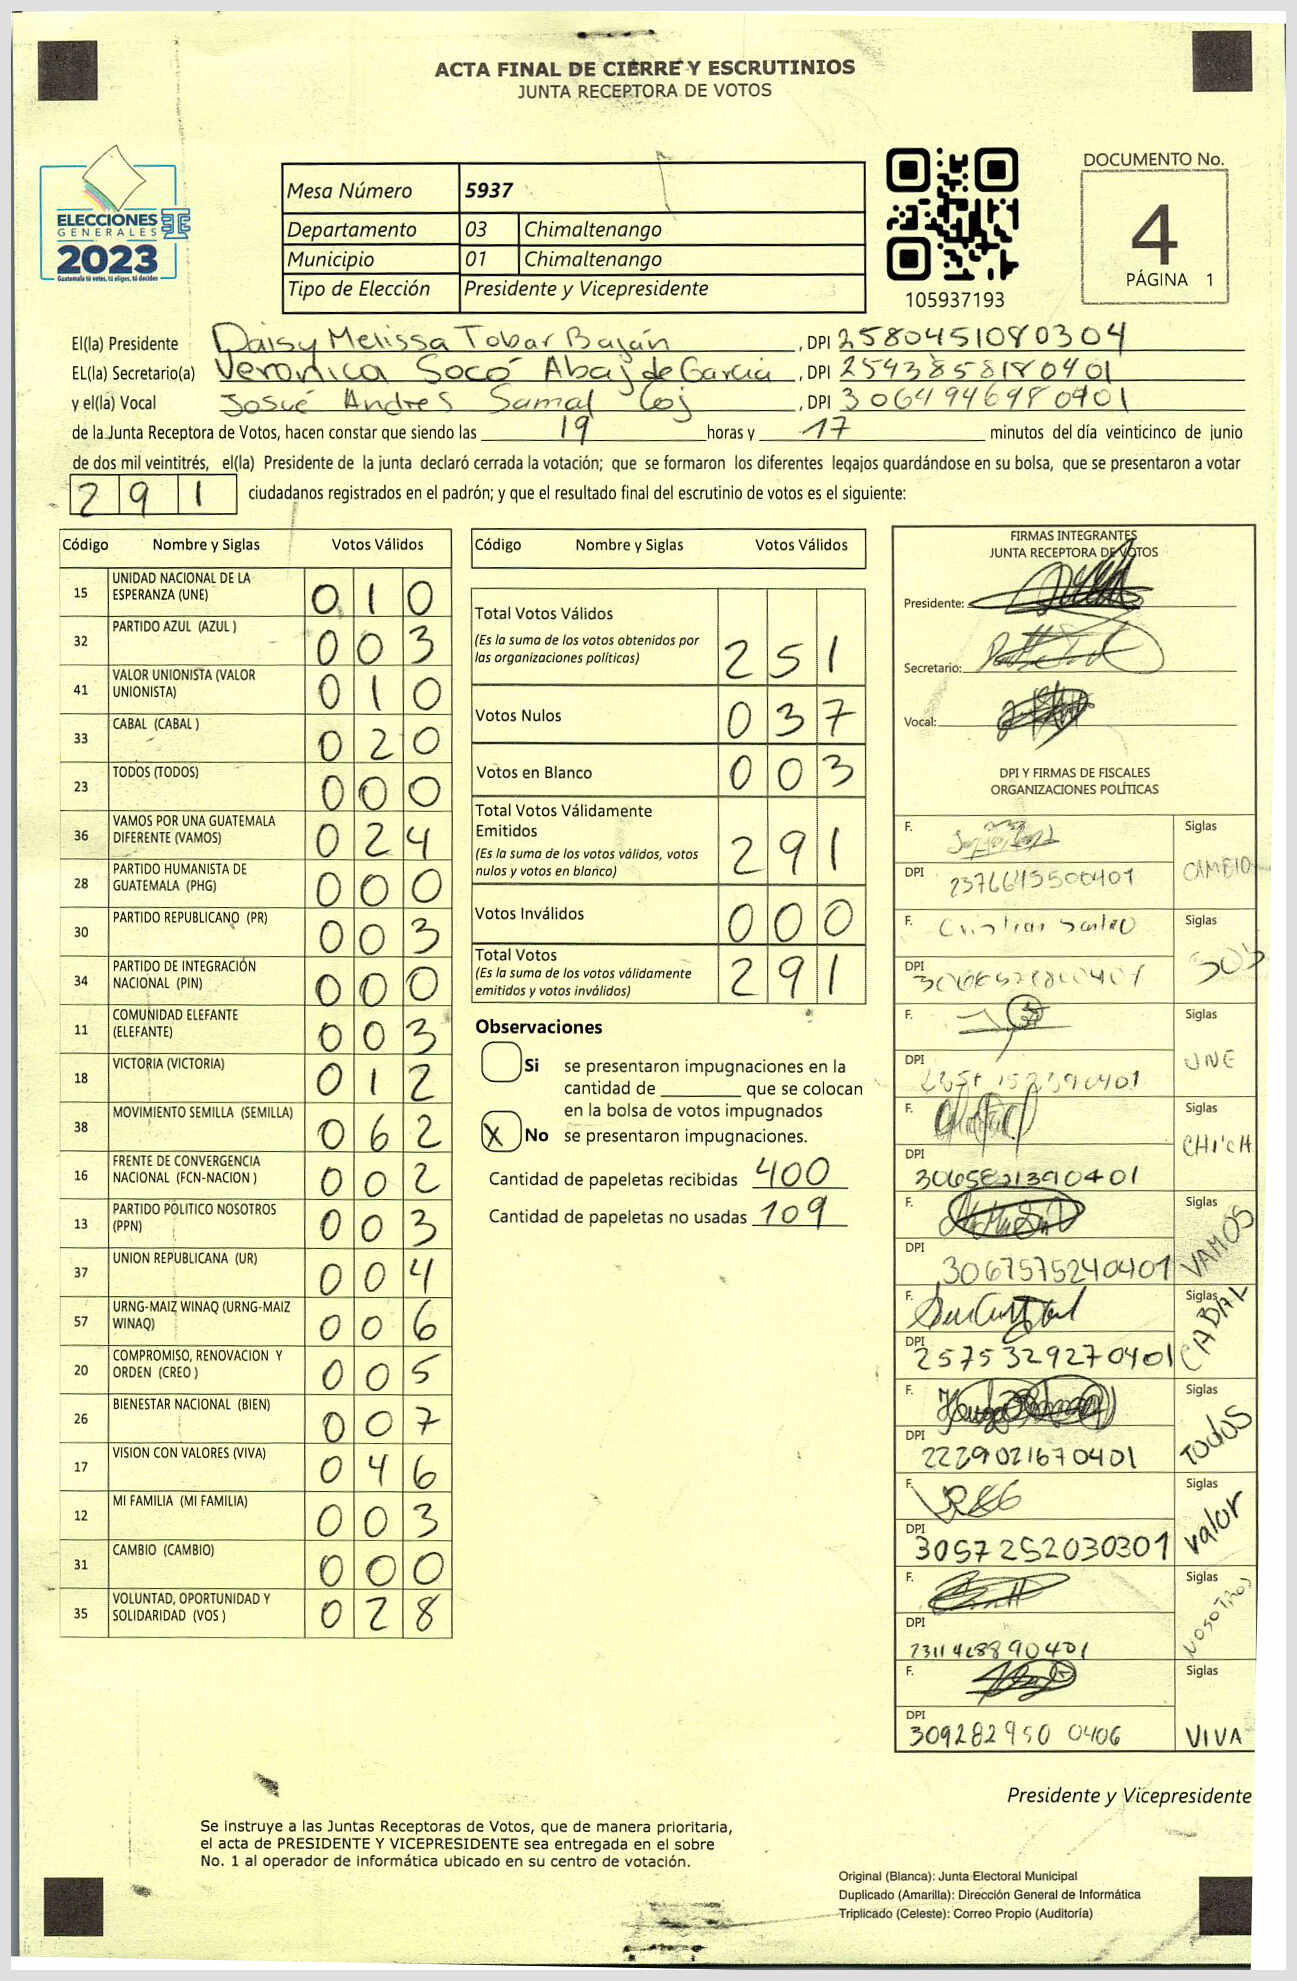 ACTA FINAL DE CIERRE Y ESCRUTINIOS
JUNTA RECEPTORA DE VOTOS
ELECCIONES
GENERALES
2023
Guatemala tú votes, tú eliges, tú decides
Mesa Número 5937
Departamento 03 Chimaltenango
Municipio 01 Chimaltenango
Tipo de Elección Presidente y Vicepresidente
105937193
DOCUMENTO No.
4
PÁGINA 1
El(la) Presidente Daisy Melissa Tobar Baján, DPI 2580451080304
EL(la) Secretario(a) Veronica Socó Abaj de Garcia, DPI 2543858180401
y el(la) Vocal Josué Andres Samal Coj, DPI 3064946980401
de la Junta Receptora de Votos, hacen constar que siendo las 19 horas y 17 minutos del día veinticinco de junio
de dos mil veintitrés, el(la) Presidente de la junta declaró cerrada la votación; que se formaron los diferentes legajos guardándose en su bolsa, que se presentaron a votar
291 ciudadanos registrados en el padrón; y que el resultado final del escrutinio de votos es el siguiente:
Código Nombre y Siglas Votos Válidos
15 UNIDAD NACIONAL DE LA ESPERANZA (UNE) 010
32 PARTIDO AZUL (AZUL ) 003
41 VALOR UNIONISTA (VALOR UNIONISTA) 010
33 CABAL (CABAL ) 020
23 TODOS (TODOS) 000
36 VAMOS POR UNA GUATEMALA DIFERENTE (VAMOS) 024
28 PARTIDO HUMANISTA DE GUATEMALA (PHG) 000
30 PARTIDO REPUBLICANO (PR) 003
34 PARTIDO DE INTEGRACIÓN NACIONAL (PIN) 000
11 COMUNIDAD ELEFANTE (ELEFANTE) 003
18 VICTORIA (VICTORIA) 012
38 MOVIMIENTO SEMILLA (SEMILLA) 062
16 FRENTE DE CONVERGENCIA NACIONAL (FCN-NACION ) 002
13 PARTIDO POLITICO NOSOTROS (PPN) 003
37 UNION REPUBLICANA (UR) 004
57 URNG-MAIZ WINAQ (URNG-MAIZ WINAQ) 006
20 COMPROMISO, RENOVACION Y ORDEN (CREO ) 005
26 BIENESTAR NACIONAL (BIEN) 007
17 VISION CON VALORES (VIVA) 046
12 MI FAMILIA (MI FAMILIA) 003
31 CAMBIO (CAMBIO) 000
35 VOLUNTAD, OPORTUNIDAD Y SOLIDARIDAD (VOS ) 028
Código Nombre y Siglas Votos Válidos
Total Votos Válidos
(Es la suma de los votos obtenidos por
las organizaciones políticas) 251
Votos Nulos 037
Votos en Blanco 003
Total Votos Válidamente
Emitidos
(Es la suma de los votos válidos, votos
nulos y votos en blanco) 291
Votos Inválidos 000
Total Votos
(Es la suma de los votos válidamente
emitidos y votos inválidos) 291
Observaciones
Si se presentaron impugnaciones en la
cantidad de ________ que se colocan
en la bolsa de votos impugnados
X No se presentaron impugnaciones.
Cantidad de papeletas recibidas 400
Cantidad de papeletas no usadas 109
FIRMAS INTEGRANTES
JUNTA RECEPTORA DE VOTOS
Presidente:
Secretario:
Vocal:
DPI Y FIRMAS DE FISCALES
ORGANIZACIONES POLÍTICAS
F. Siglas
DPI 2376645500401 CAMBIO
F. Siglas
DPI
F. Siglas
DPI UNE
F. Siglas
DPI
F. Siglas
DPI 3067575240401 VAMOS
F. Siglas
DPI 2575329270401 CABAL
F. Siglas
DPI 2229021670401 TODOS
F. Siglas
DPI 3057252030301 valor
F. Siglas
DPI NOSOTROS
F. Siglas
DPI 309282950 0406 VIVA
Presidente y Vicepresidente
Se instruye a las Juntas Receptoras de Votos, que de manera prioritaria,
el acta de PRESIDENTE Y VICEPRESIDENTE sea entregada en el sobre
No. 1 al operador de informática ubicado en su centro de votación.
Original (Blanca): Junta Electoral Municipal
Duplicado (Amarilla): Dirección General de Informática
Triplicado (Celeste): Correo Propio (Auditoría)